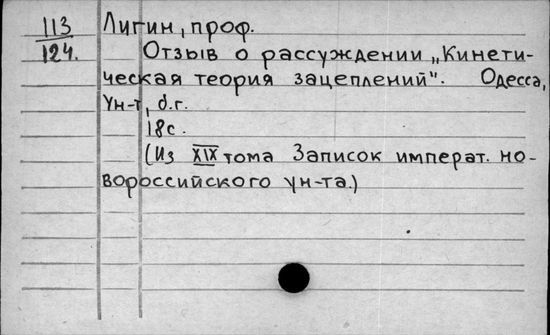 113 Лигин, проф.
124. Отзыв о рассуждении „Кинети-
ческая теория зацеплений". Одесса,
Ун-т, б.г.
18с.
(Из XIX тома Записок императ. но-
вороссийского ун-та.)